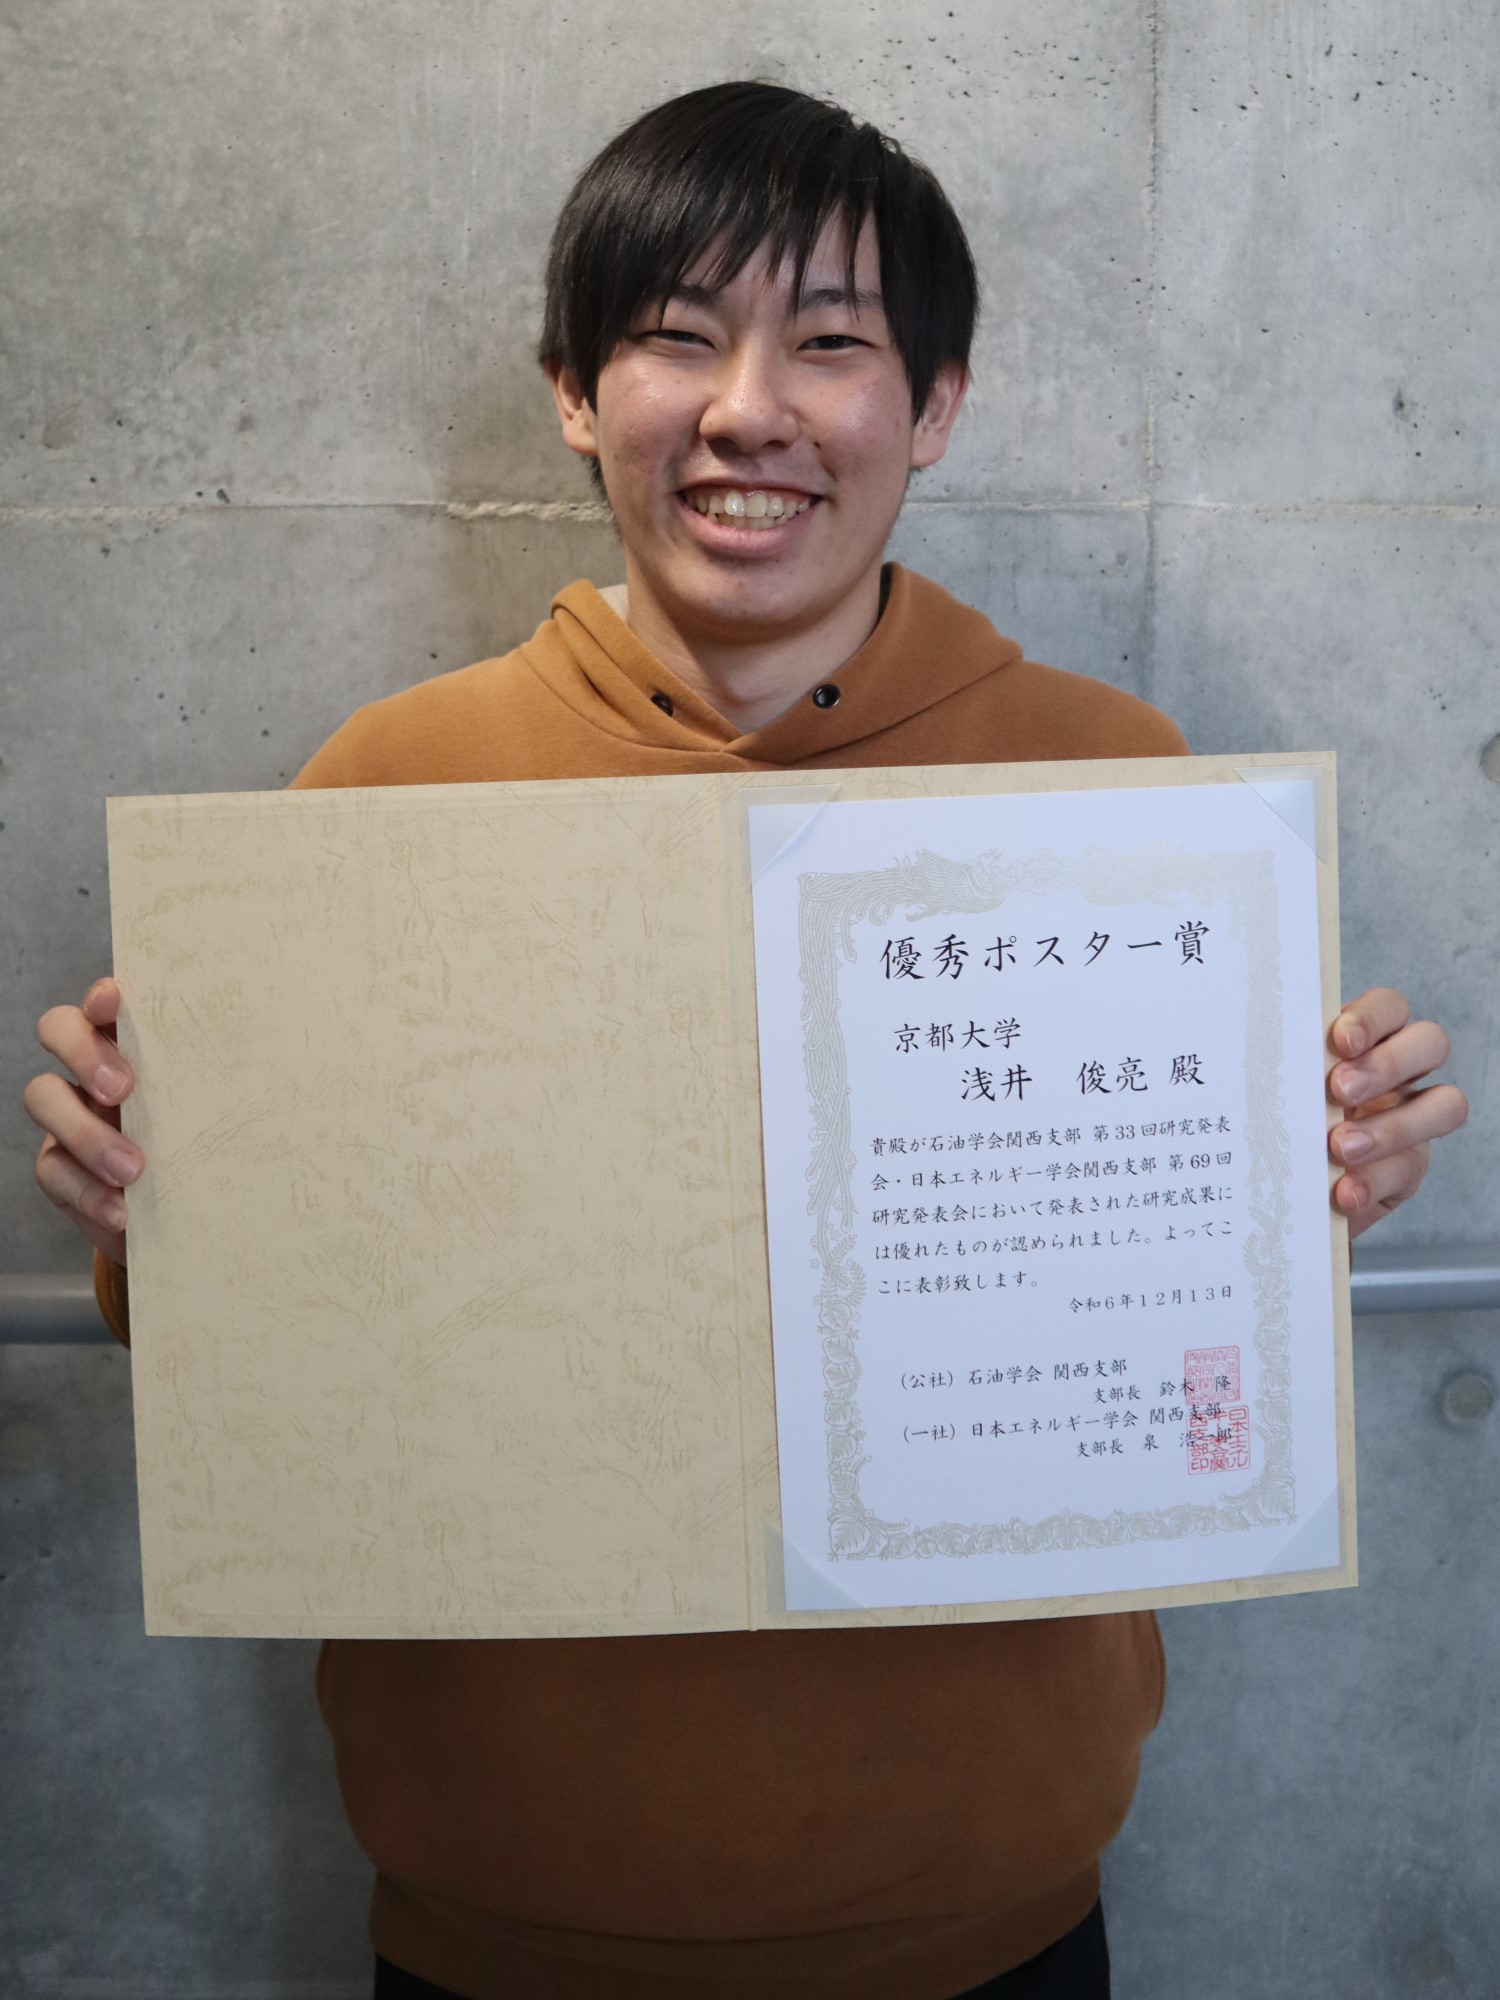 優秀ポスター賞
京都大学
浅井 俊亮 殿
貴殿が石油学会関西支部 第33回研究発表
会・日本エネルギー学会関西支部 第69回
研究発表会において発表された研究成果に
は優れたものが認められました。よってこ
こに表彰致します。
令和6年12月13日
(公社) 石油学会 関西支部
支部長 鈴木 隆
(一社) 日本エネルギー学会 関西支部
支部長 泉 浩一郎